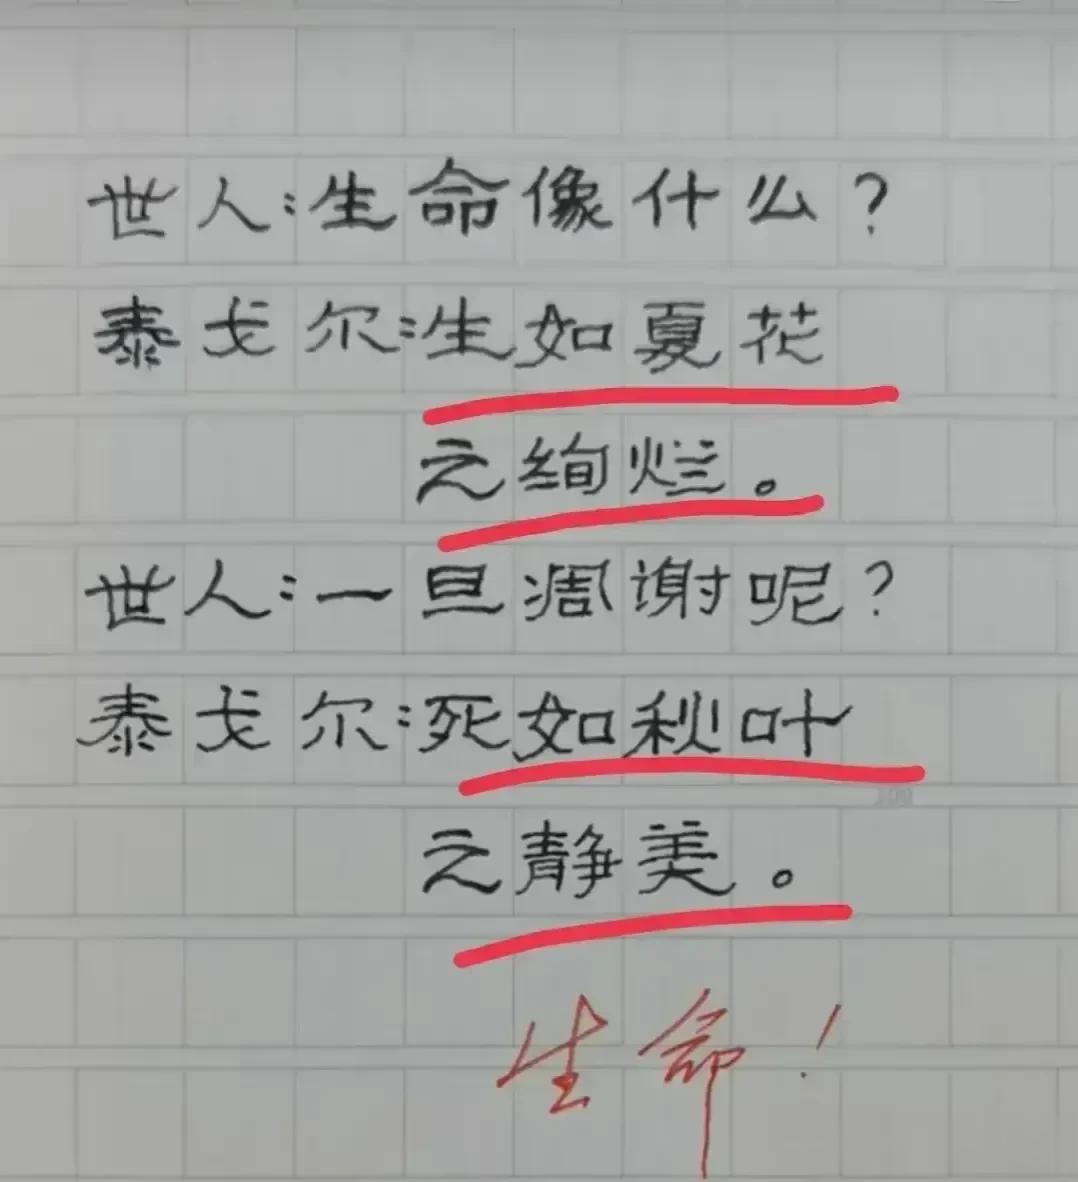 世人:生命像什么?
泰戈尔:生如夏花
之绚烂。
世人:一旦凋谢呢?
泰戈尔:死如秋叶
之静美。
生命!